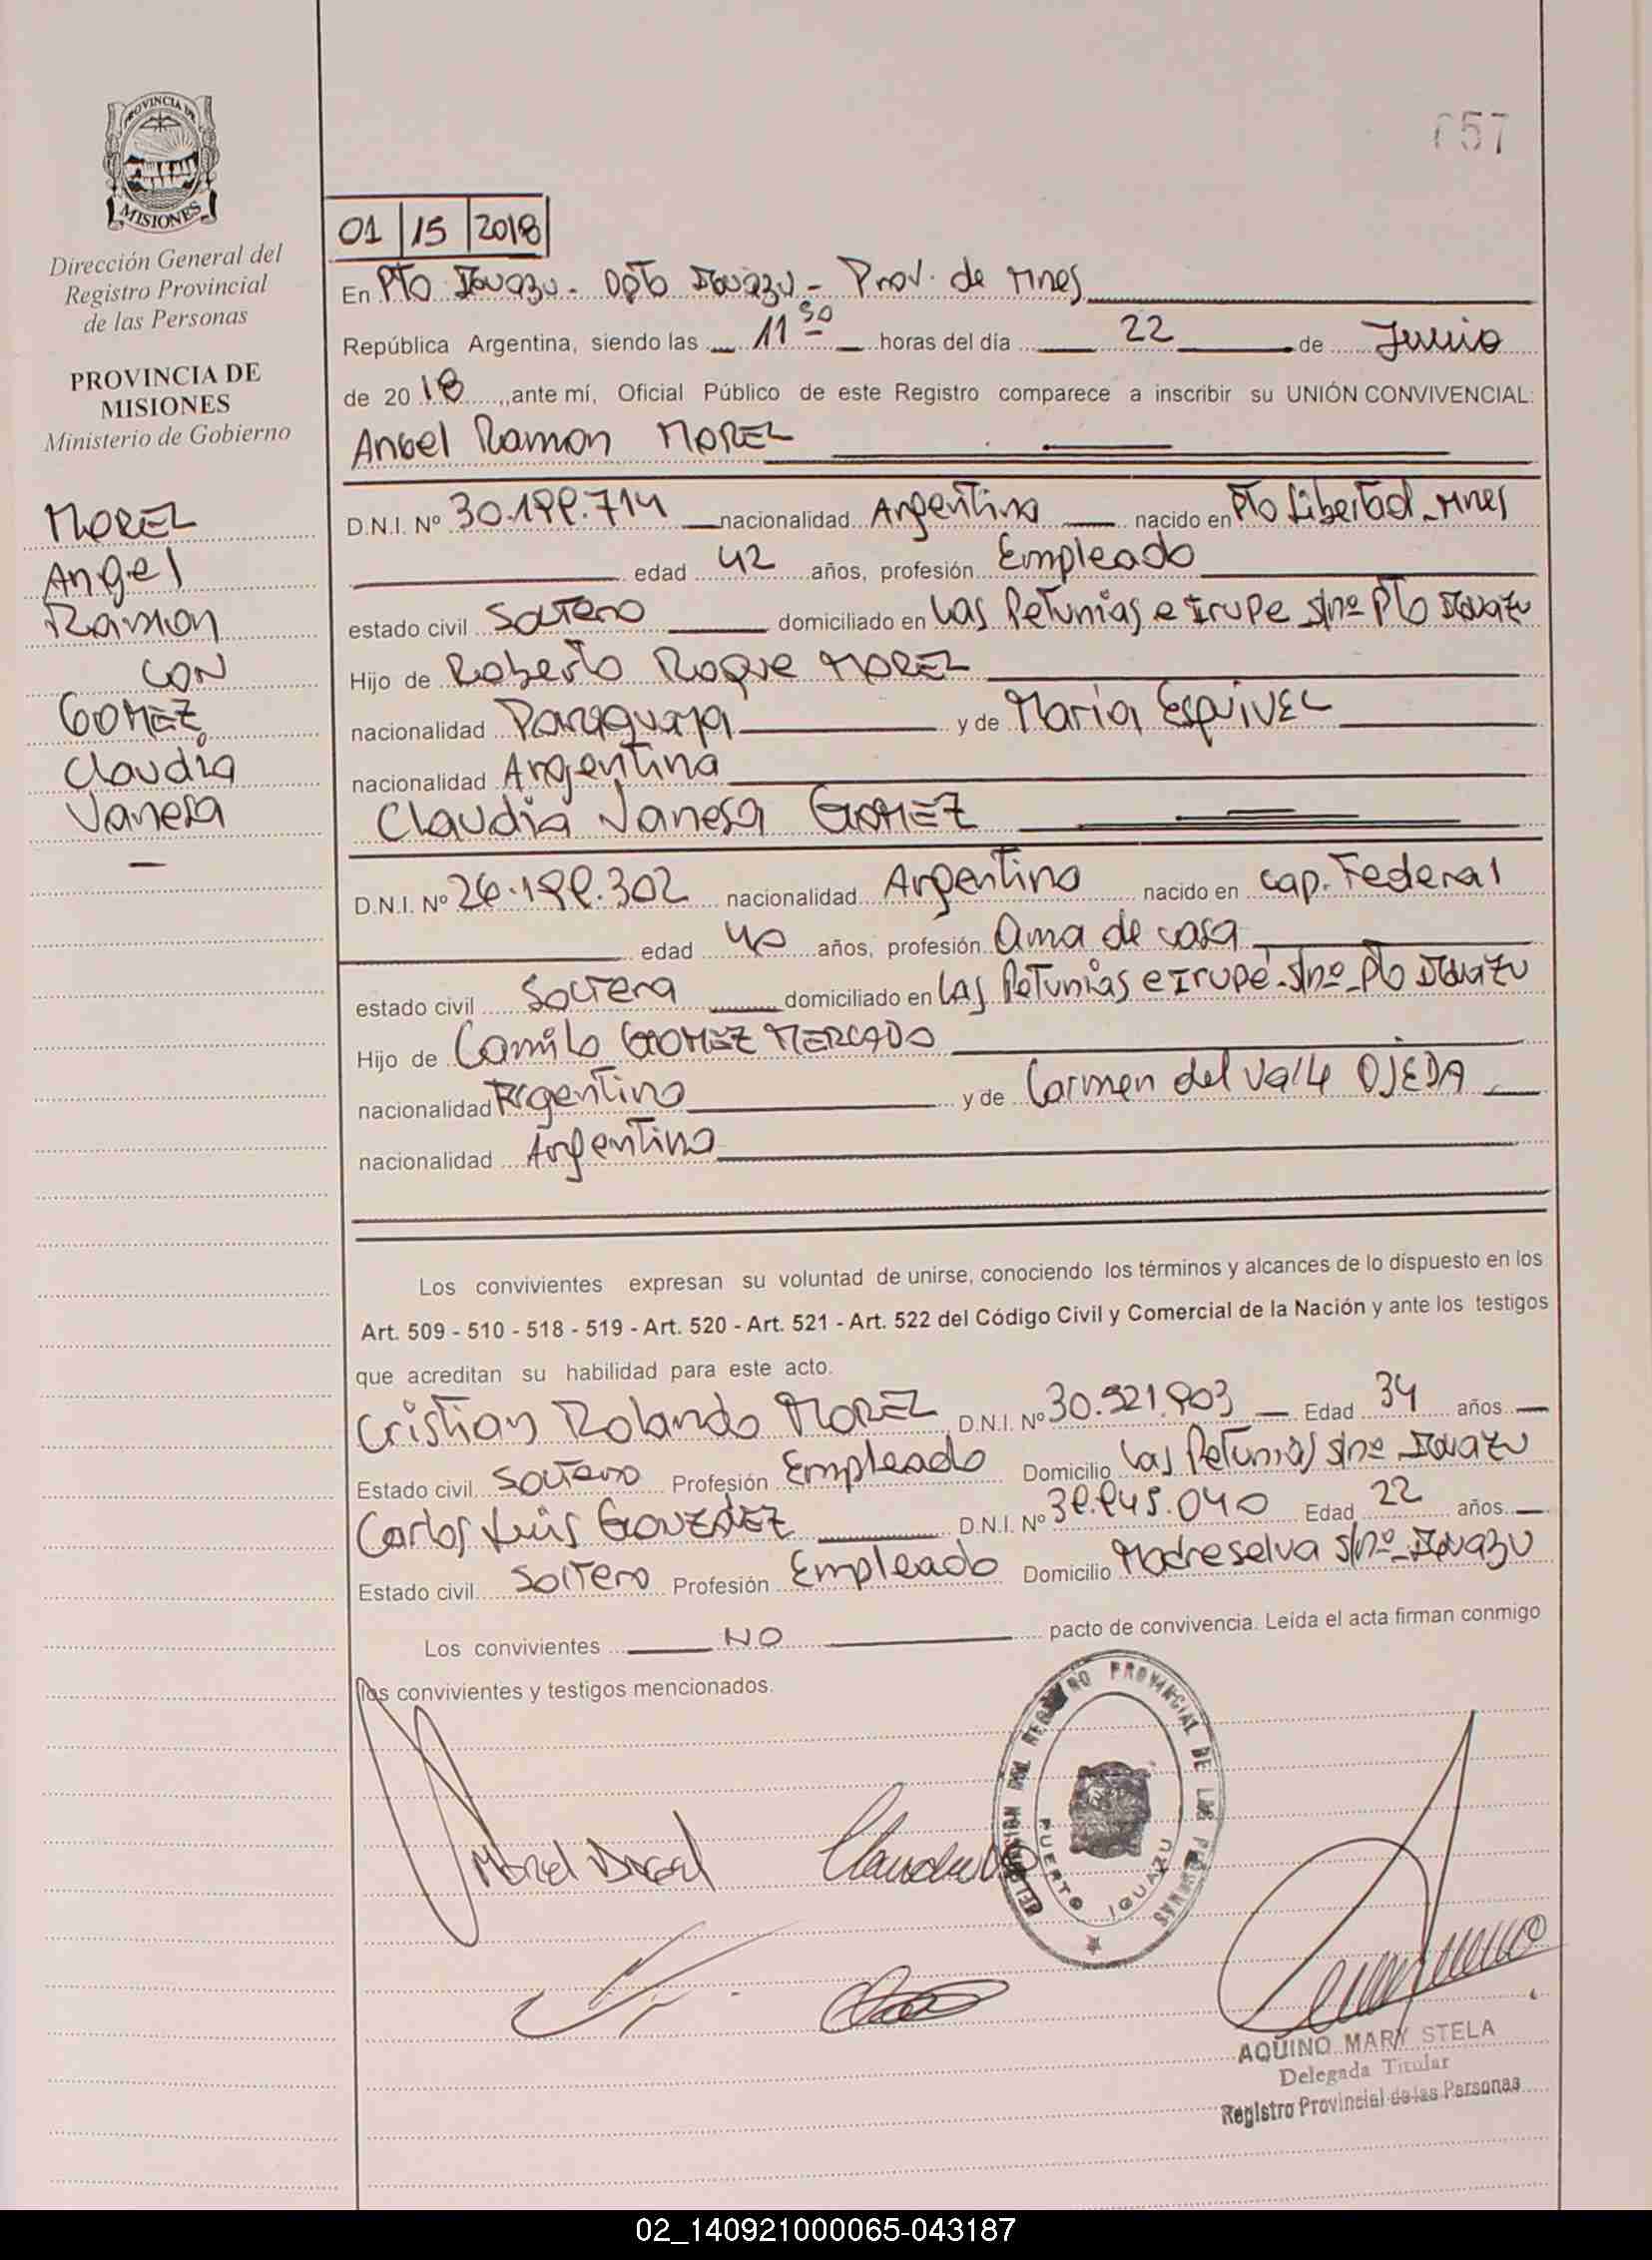 PROVINCIA DE
MISIONES
Dirección General del
Registro Provincial
de las Personas
PROVINCIA DE
MISIONES
Ministerio de Gobierno
MOREL
Angel
Ramon
CON
GOMEZ
Claudia
Vanesa
57
01 | 15 | 2018
En Pto Iguazu - Dpto Iguazu - Prov. de Mnes
República Argentina, siendo las 11 30 horas del día 22 de Junio
de 2018, ante mí, Oficial Público de este Registro comparece a inscribir su UNIÓN CONVIVENCIAL:
Angel Ramon MOREL
D.N.I. Nº nacionalidad Argentina nacido en Pto Libertad - Mnes
edad 42 años, profesión Empleado
estado civil Soltero domiciliado en Las Petunias e Irupe s/nº Pto Iguazu
Hijo de Roberto Roque MOREL
nacionalidad Paraguaya y de Maria ESQUIVEL
nacionalidad Argentina
Claudia Vanesa GOMEZ
D.N.I. Nº nacionalidad Argentina nacido en Cap. Federal
edad 40 años, profesión Ama de casa
estado civil Soltera domiciliado en Las Petunias e Irupé - s/nº - Pto Iguazu
Hijo de Camilo GOMEZ MERCADO
nacionalidad Argentino y de Carmen del Valle OJEDA
nacionalidad Argentina
Los convivientes expresan su voluntad de unirse, conociendo los términos y alcances de lo dispuesto en los
Art. 509 - 510 - 518 - 519 - Art. 520 - Art. 521 - Art. 522 del Código Civil y Comercial de la Nación y ante los testigos
que acreditan su habilidad para este acto.
Cristian Rolando MOREL D.N.I. Nº 30.521.903 Edad 34 años
Estado civil Soltero Profesión Empleado Domicilio Las Petunias s/nº Iguazu
Carlos Luis GONZALEZ D.N.I. Nº Edad 22 años
Estado civil Soltero Profesión Empleado Domicilio Madreselva s/nº - Iguazu
Los convivientes NO pacto de convivencia. Leída el acta firman conmigo
los convivientes y testigos mencionados.
DEL REGISTRO PROVINCIAL DE LAS PERSONAS
PUERTO IGUAZU
Morel Angel
AQUINO MARY STELA
Delegada Titular
Registro Provincial de las Personas
02_140921000065-043187